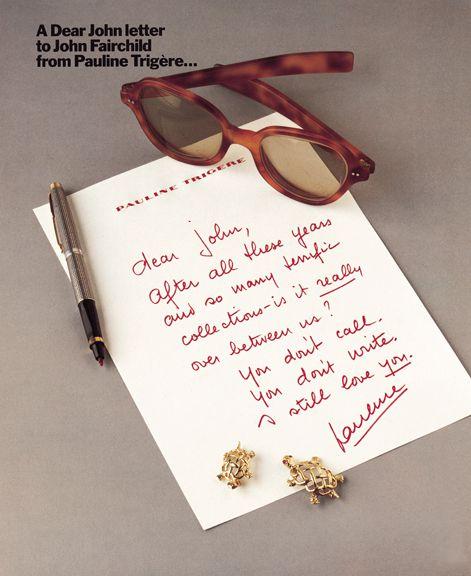 A Dear John letter
to John Fairchild
from Pauline Trigère...
PAULINE TRIGÈRE
dear John,
After all these years
and so many terrific
collections-is it really
over between us?
You don't call.
You don't write.
I still love you.
Pauline